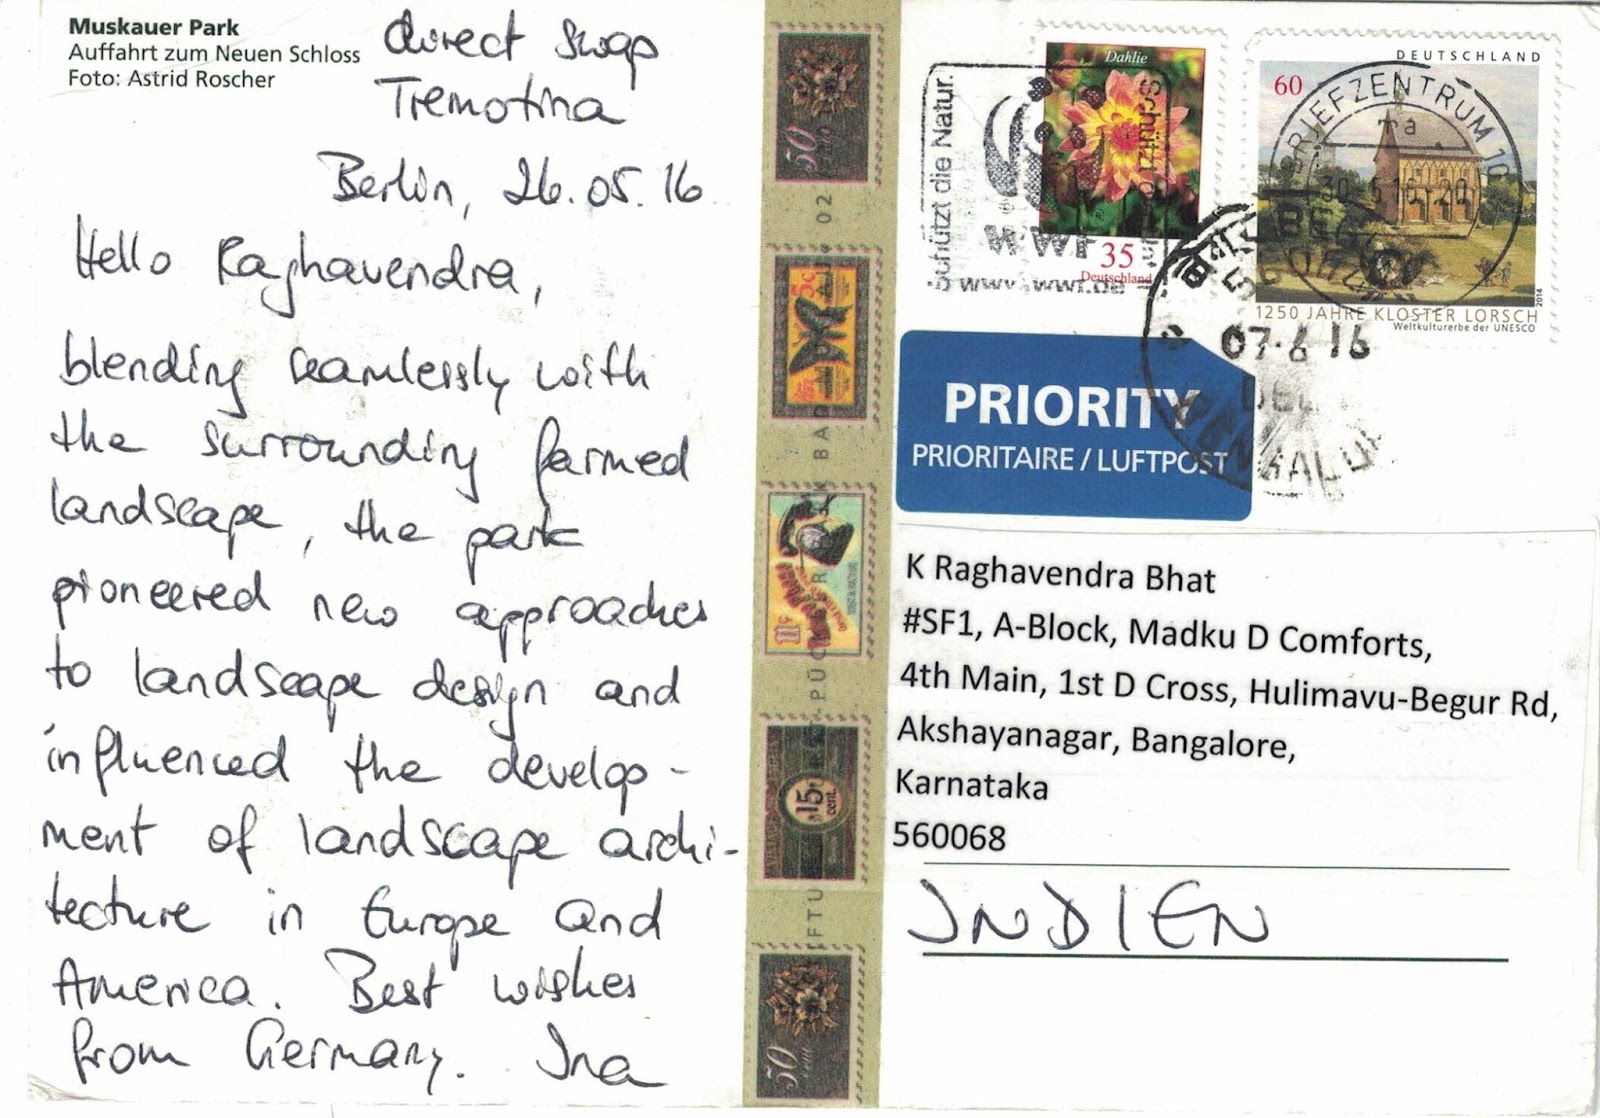 Muskauer Park
Auffahrt zum Neuen Schloss
Foto: Astrid Roscher
direct swap
Tremotina
Berlin, 26.05.16
Hello Raghavendra,
blending seamlessly with
the surrounding farmed
landscape, the park
pioneered new approaches
to landscape design and
influenced the develop-
ment of landscape archi-
tecture in Europe and
America. Best wishes
from Germany. Ina
50
5c
11c
15
cent.
50
Schützt die Natur.
WWF
www.wwf.de
Dahlie
35
Deutschland
DEUTSCHLAND
60
BRIEFZENTRUM 10
1250 JAHRE KLOSTER LORSCH
Weltkulturerbe der UNESCO
2014
07.6 16
PRIORITY
PRIORITAIRE / LUFTPOST
K Raghavendra Bhat
#SF1, A-Block, Madku D Comforts,
4th Main, 1st D Cross, Hulimavu-Begur Rd,
Akshayanagar, Bangalore,
Karnataka
560068
INDIEN